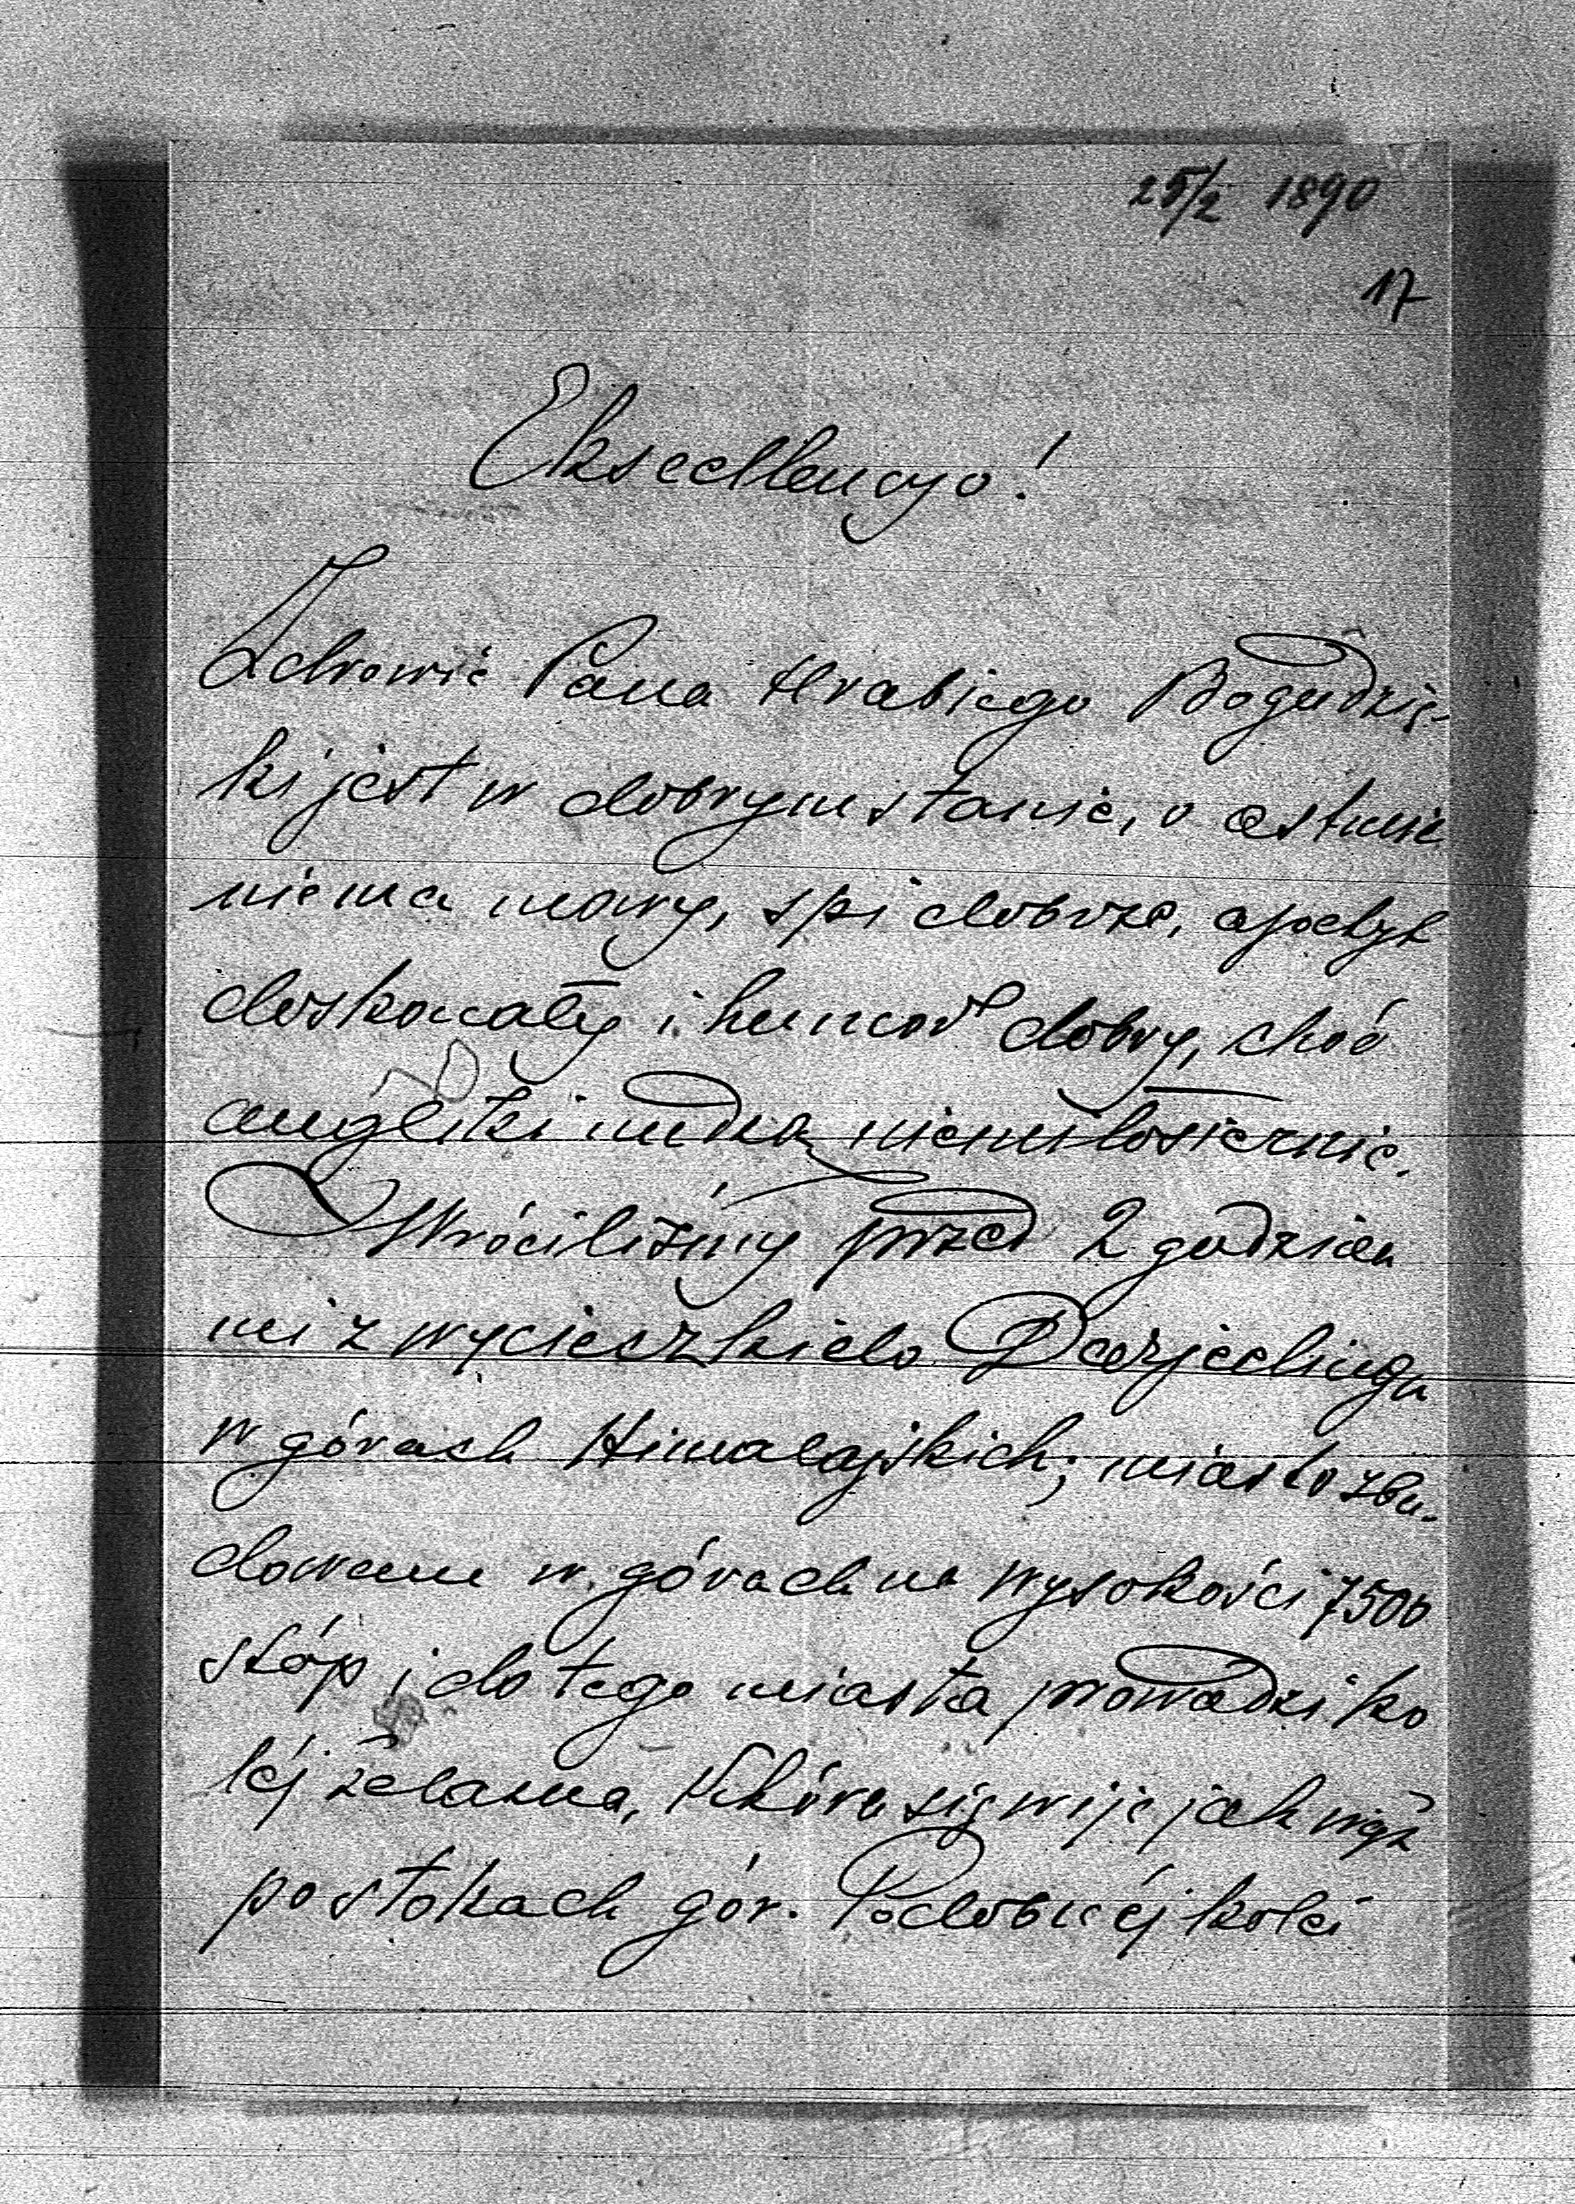 25/2 1890
17
Ekscellencyo!
Zdrowie Pana Hrabiego Bogudzię-
ki jest w dobrym stanie, o astmie
niema mowy, spi dobrze, apetyt
doskonały i humor dobry, choć
angliki nudzą niemiłosiernie.
Wróciliśmy przed 2 godzina
mi z wycieczki do Darjeelingu
w górach Himalajskich; miasto zbu-
dowane w górach na wysokości 7500
stóp i do tego miasta prowadzi ko
lej żelazna, która się wije jak wąż
po stokach gór. Podobnéj kolei